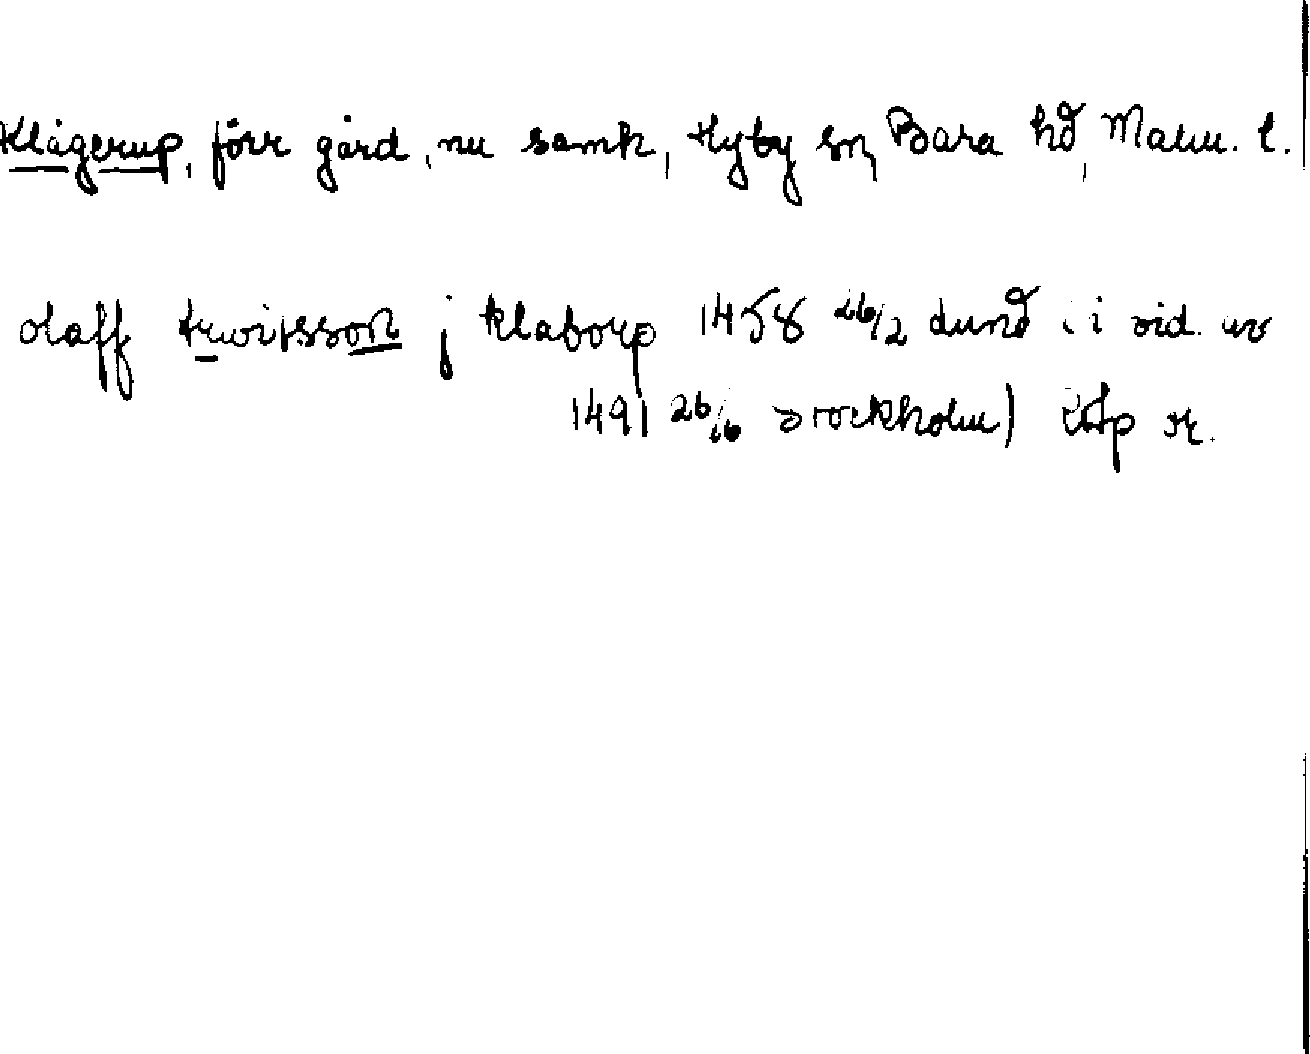 Klågerup, förr gård, nu samh, Hyby sn, Bara hd, Malm. l.
olaff truvitsson j klaborp 1458 26/2 Lund (i vid. av
1491 26/6 Stockholm) or.